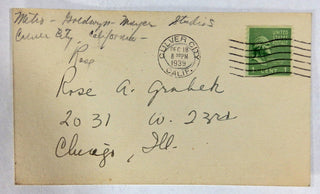 Metro - Goldwyn - Mayer Studios
Culver City, California -
CULVER CITY
DEC 18
PM
1939
CALIF.
UNITED STATES
POSTAGE
1 CENT 1
Rose
Rose A. Grabek
2031 W. 23rd
Chicago, Ill.